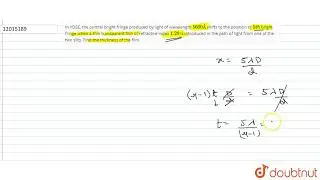 12015189
In YDSE, the central bright fringe produced by light of wavelength 5600Å shifts to the position of 5th bright
fringe when a thin transparent film of refractive index 1.28 is introduced in the path of light from one of the
two slits. Find the thickness of the film.
x = 5λD / 2
(μ-1) t D / 2 = 5λD / 2
t = 5λ / (μ-1) =
doubtnut